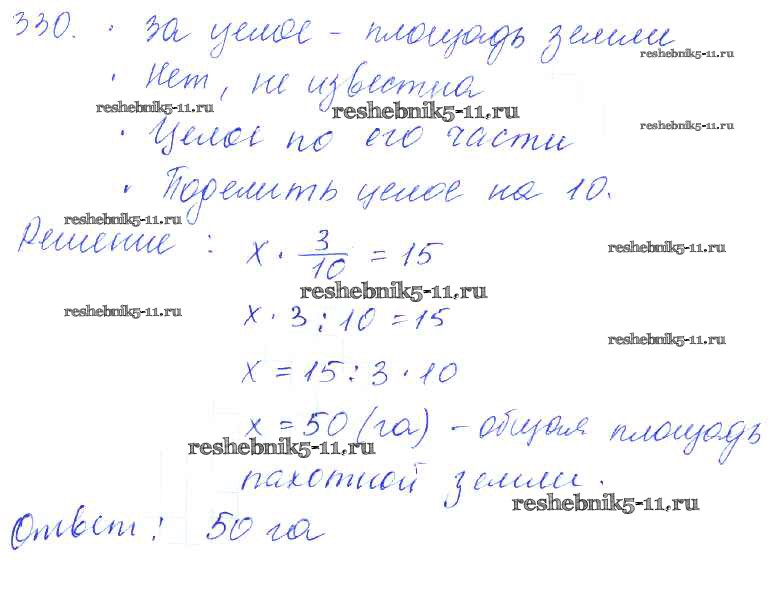 330. · За целое - площадь земли
reshebnik5-11.ru
· Нет, не известна
reshebnik5-11.ru reshebnik5-11.ru reshebnik5-11.ru
· Целое по его части
· Поделить целое на 10.
reshebnik5-11.ru
Решение : x · 3/10 = 15
reshebnik5-11.ru
reshebnik5-11.ru
x · 3 : 10 = 15
reshebnik5-11.ru
reshebnik5-11.ru
x = 15 : 3 · 10
x = 50 (га) - общая площадь
reshebnik5-11.ru
пахотной земли.
reshebnik5-11.ru
Ответ: 50 га